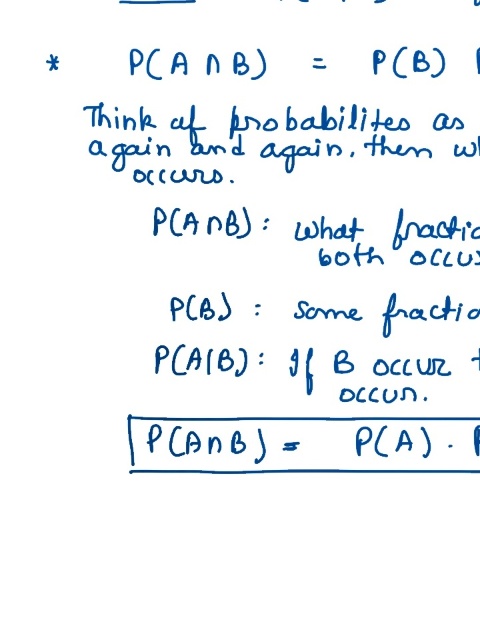 * P(A ∩ B) = P(B)
Think of probabilites as
again and again, then
occurs.
P(A∩B) : what
both
P(B) : some
P(A|B) : If B occur
occur.
P(A∩B) = P(A) .